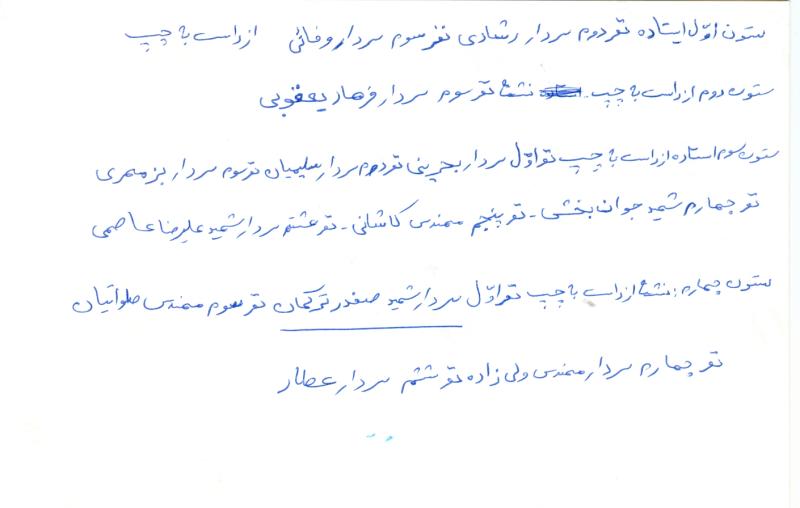 ستون اوّل ایستاده نفر دوم سردار رشادی نفر سوم سردار وفائی از راست به چپ
ستون دوم از راست به چپ نشسته نفر سوم سردار فرهاد یعقوبی
ستون سوم استاده از راست به چپ نفر اوّل سردار بحرینی نفر دوم سردار سلیمیان نفر سوم سردار بزمهری
نفر چهارم شهید جوان بخشی - نفر پنجم مهندس کاشانی - نفر هشتم سردار شهید علیرضا عاصمی
ستون چهارم : نشسته از راست به چپ نفر اوّل سردار شهید صفدر ترکمان نفر سوم مهندس صلواتیان
نفر چهارم سردار مهندس ولی زاده نفر ششم سردار عطار